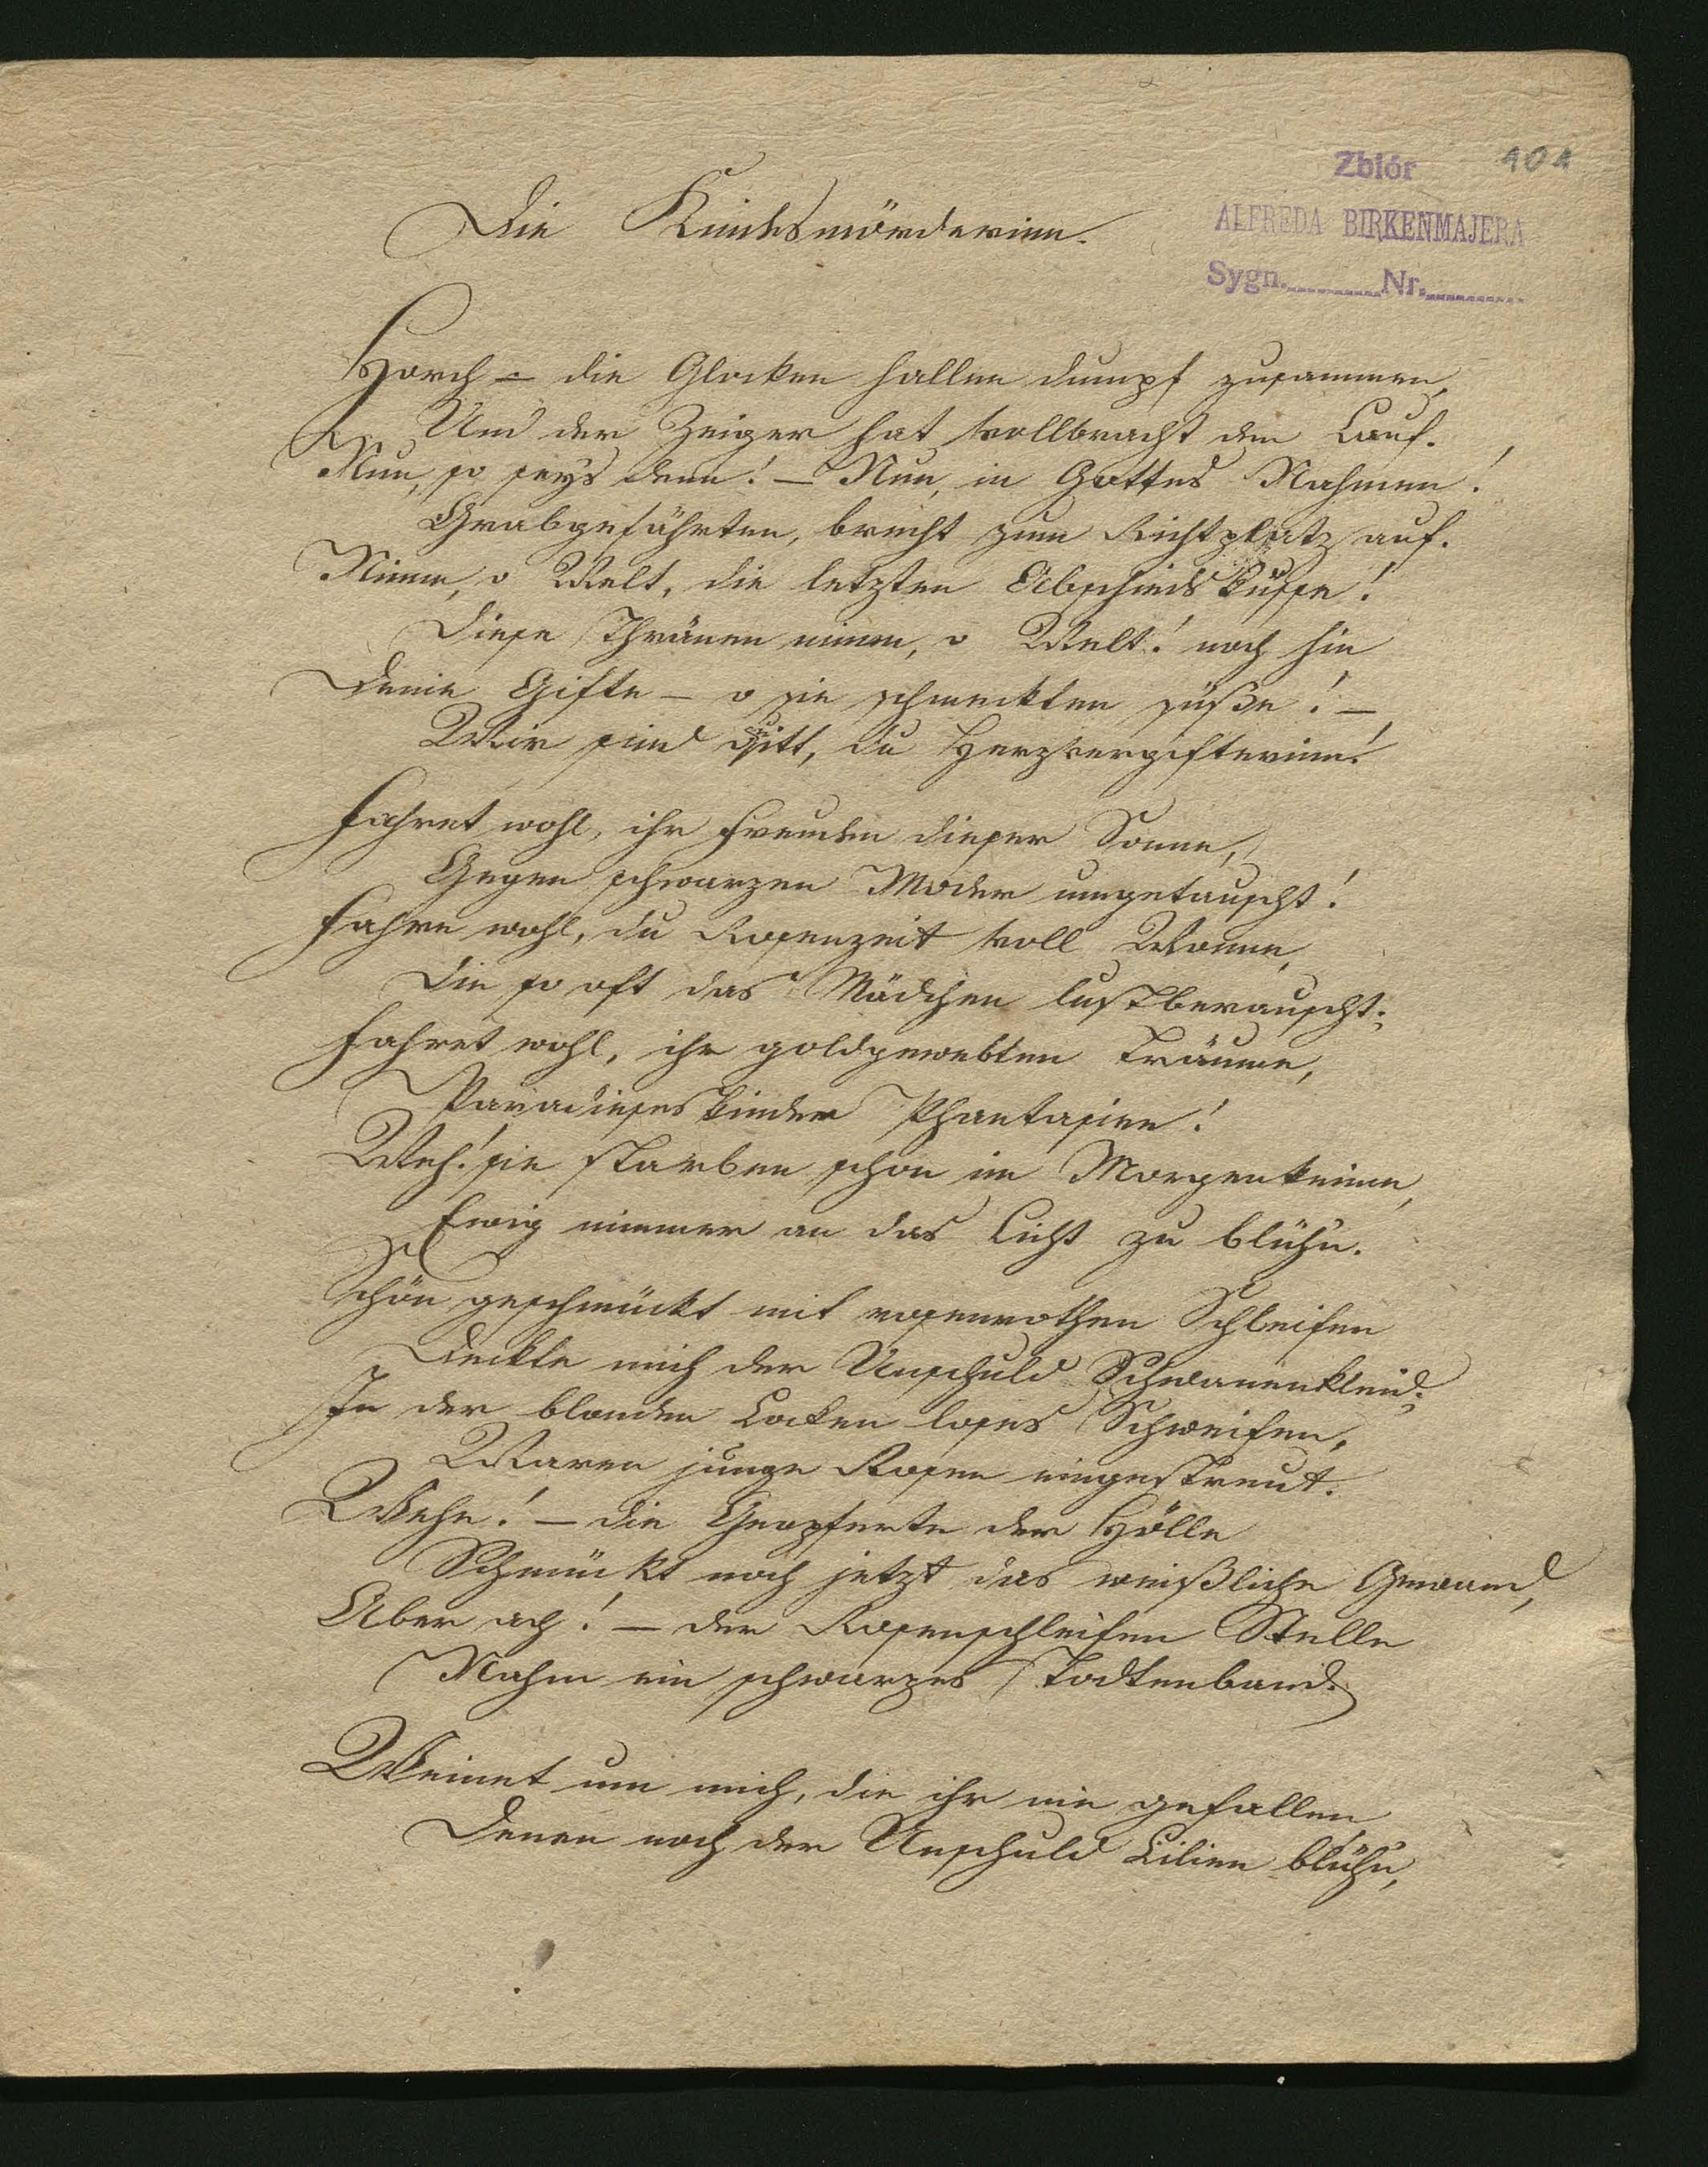 Zbiór 101
ALFREDA BIRKENMAJERA
Sygn. Nr.
Die Kindesmörderinn.
Horch – die Glocken hallen dumpf zusammen,
Und der Zeiger hat vollbracht den Lauf.
Nun, so seys denn! – Nun, in Gottes Nahmen!
Grabgefährten, brecht zum Richtplatz auf.
Nimm, o Welt, die letzten Abschiedsküsse!
Diese Thränen nimm, o Welt! noch hin
Deine Gifte – o sie schmeckten süße! –
Wir sind quitt, du Herzvergifterinn!
Fahret wohl, ihr Freuden dieser Sonne,
Gegen schwarzen Moder umgetauscht!
Fahre wohl, du Rosenzeit voll Wonne,
Die so oft das Mädchen lustberauscht;
Fahret wohl, ihr goldgewebten Träume,
Paradieseskinder Phantasien!
Weh! sie starben schon im Morgenkeime,
Ewig nimmer an das Licht zu blühn.
Schön geschmückt mit rosenrothen Schleifen
Deckte mich der Unschuld Schwanenkleid;
In der blonden Locken loses Schweifen,
Waren junge Rosen eingestreut.
Wehe! – die Geopferte der Hölle
Schmückt noch jetzt das weißliche Gewand,
Aber ach! – der Rosenschleifen Stelle
Nahm ein schwarzes Todtenband.
Weinet um mich, die ihr nie gefallen,
Denen noch der Unschuld Lilien blühn,